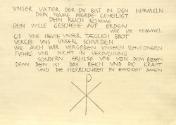 UNSER VATER DER DU BIST IN DEN HIMMELN
DEIN NAME WERDE GEHEILIGT
DEIN REICH KOMME
DEIN WILLE GESCHEHE AUF ERDEN
WIE IM HIMMEL
GIB UNS HEUTE UNSER TÄGLICH BROT
VERGIB UNS UNSERE SCHULDEN
WIE AUCH WIR VERGEBEN UNSEREN SCHULDNERN
FÜHRE UNS NICHT IN VERSUCHUNG
SONDERN ERLÖSE UNS VON DEM BÖSEN
DENN DEIN IST DAS REICH UND DIE KRAFT
UND DIE HERRLICHKEIT IN EWIGKEIT AMEN